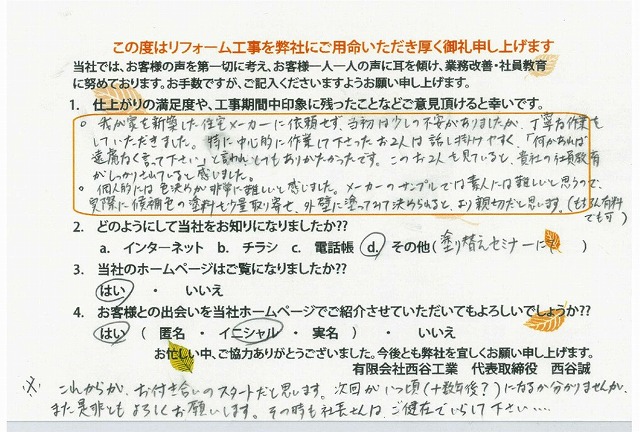 この度はリフォーム工事を弊社にご用命いただき厚く御礼申し上げます
当社では、お客様の声を第一切に考え、お客様一人一人の声に耳を傾け、業務改善・社員教育
に努めております。お手数ですが、ご記入くださいますようお願い申し上げます。
1. 仕上がりの満足度や、工事期間中印象に残ったことなどご意見頂けると幸いです。
○ 我が家を新築した住宅メーカーに依頼せず、当初は少しの不安がありましたが、丁寧な作業を
していただきました。特に中心的に作業して下さったお2人は話し掛けやすく、「何かあれば
遠慮なく言って下さい」と言われ、とてもありがたかったです。このお2人を見ていると、貴社の社員教育
がしっかりされていると感じました。
○ 個人的には色決めが非常に難しいと感じました。メーカーのサンプルでは素人には難しいと思うので、
実際に候補色の塗料を少量取り寄せ、外壁に塗ってみて決められると、より親切だと思います。(もちろん有料
でも可)
2. どのようにして当社をお知りになりましたか??
a. インターネット b. チラシ c. 電話帳 d. その他(塗り替えセミナーに )
3. 当社のホームページはご覧になりましたか??
はい ・ いいえ
4. お客様との出会いを当社ホームページでご紹介させていただいてもよろしいでしょうか??
はい ( 匿名 ・ イニシャル ・ 実名 ) ・ いいえ
お忙しい中、ご協力ありがとうございました。今後とも弊社を宜しくお願い申し上げます。
有限会社西谷工業 代表取締役 西谷誠
※ これからが、お付き合いのスタートだと思います。次回がいつ頃(十数年後?)になるか分かりませんが、
また是非ともよろしくお願いします。その時も社長さんは、ご健在でいらして下さい....